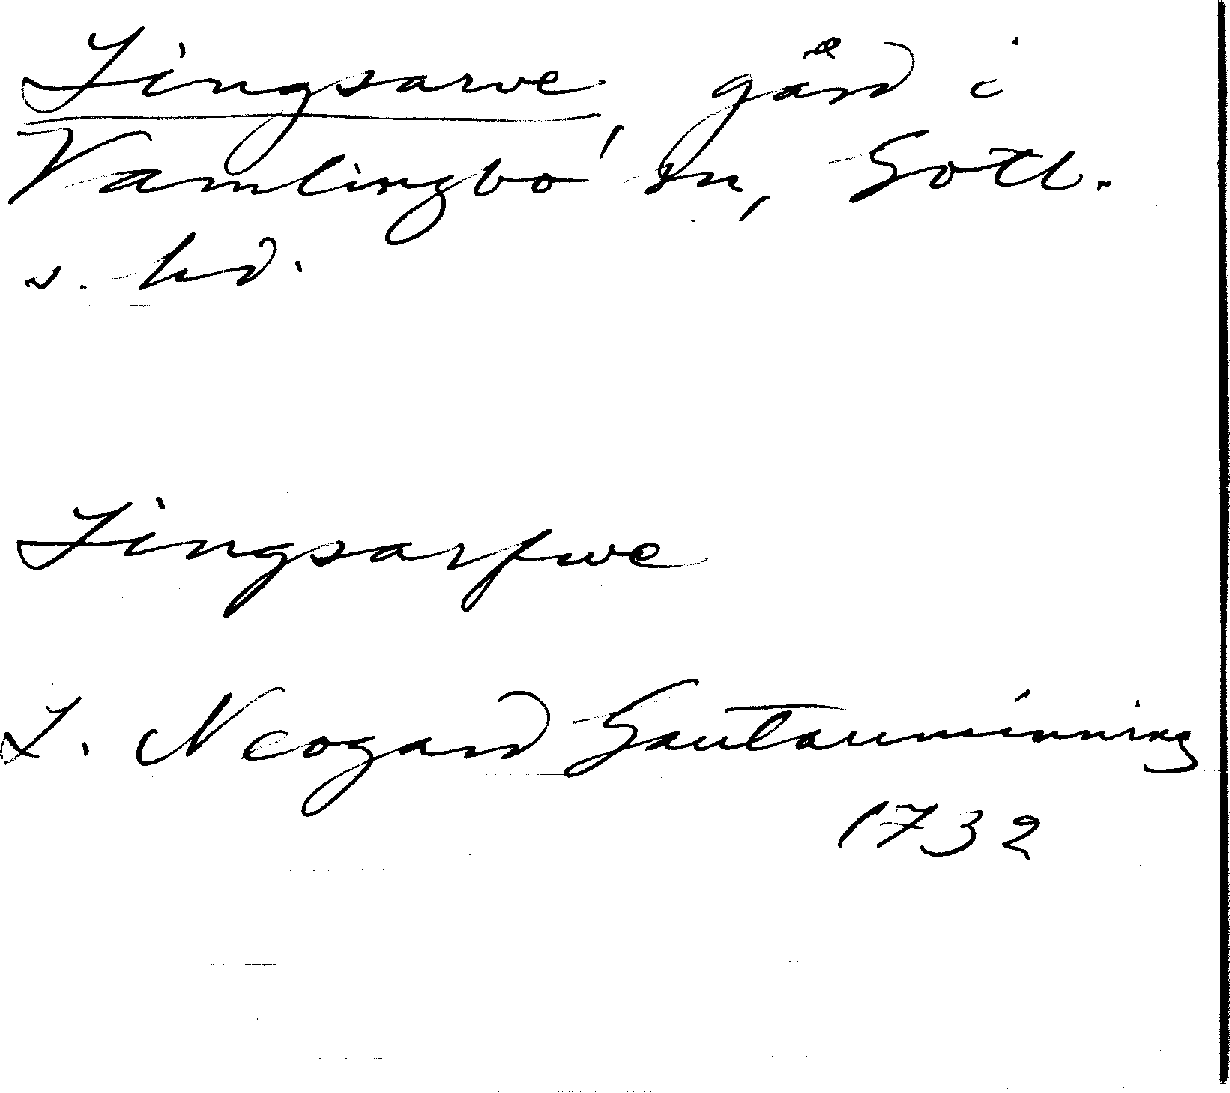 Lingsarve, gård i
Vamlingbo sn, Gotl.
s. hd.
Lingsarfwe
L. Neogard Gautauminning
1732